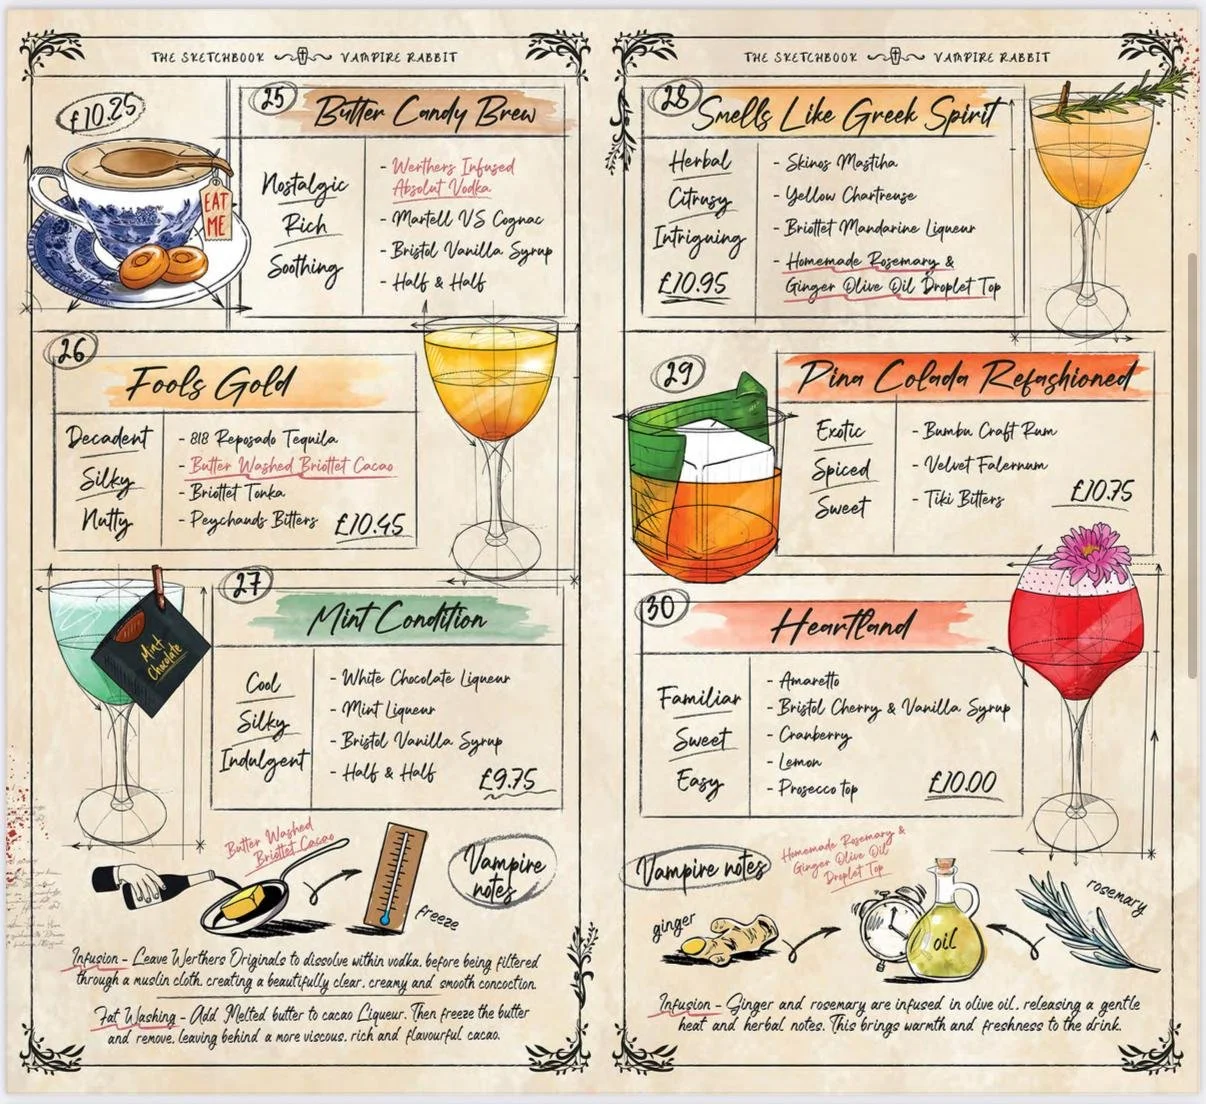 THE SKETCHBOOK VAMPIRE RABBIT
£10.25
25 Butter Candy Brew
Nostalgic
Rich
Soothing
- Werthers Infused
Absolut Vodka
- Martell VS Cognac
- Bristol Vanilla Syrup
- Half & Half
EAT
ME
26
Fools Gold
Decadent
Silky
Nutty
- 818 Reposado Tequila
- Butter Washed Briottet Cacao
- Briottet Tonka
- Peychauds Bitters
£10.45
27
Mint Condition
Mint
Chocolate
Cool
Silky
Indulgent
- White Chocolate Liqueur
- Mint Liqueur
- Bristol Vanilla Syrup
- Half & Half
£9.75
Butter Washed
Briottet Cacao
freeze
Vampire
notes
Infusion - Leave Werthers Originals to dissolve within vodka, before being filtered
through a muslin cloth, creating a beautifully clear, creamy and smooth concoction.
Fat Washing - Add Melted butter to cacao Liqueur. Then freeze the butter
and remove, leaving behind a more viscous, rich and flavourful cacao.
THE SKETCHBOOK VAMPIRE RABBIT
28 Smells Like Greek Spirit
Herbal
Citrusy
Intriguing
£10.95
- Skinos Mastiha
- Yellow Chartreuse
- Briottet Mandarine Liqueur
- Homemade Rosemary &
Ginger Olive Oil Droplet Top
29
Pina Colada Refashioned
Exotic
Spiced
Sweet
- Bumbu Craft Rum
- Velvet Falernum
- Tiki Bitters
£10.75
30
Heartland
Familiar
Sweet
Easy
- Amaretto
- Bristol Cherry & Vanilla Syrup
- Cranberry
- Lemon
- Prosecco top
£10.00
Vampire notes
Homemade Rosemary &
Ginger Olive Oil
Droplet Top
ginger
oil
rosemary
Infusion - Ginger and rosemary are infused in olive oil, releasing a gentle
heat and herbal notes. This brings warmth and freshness to the drink.